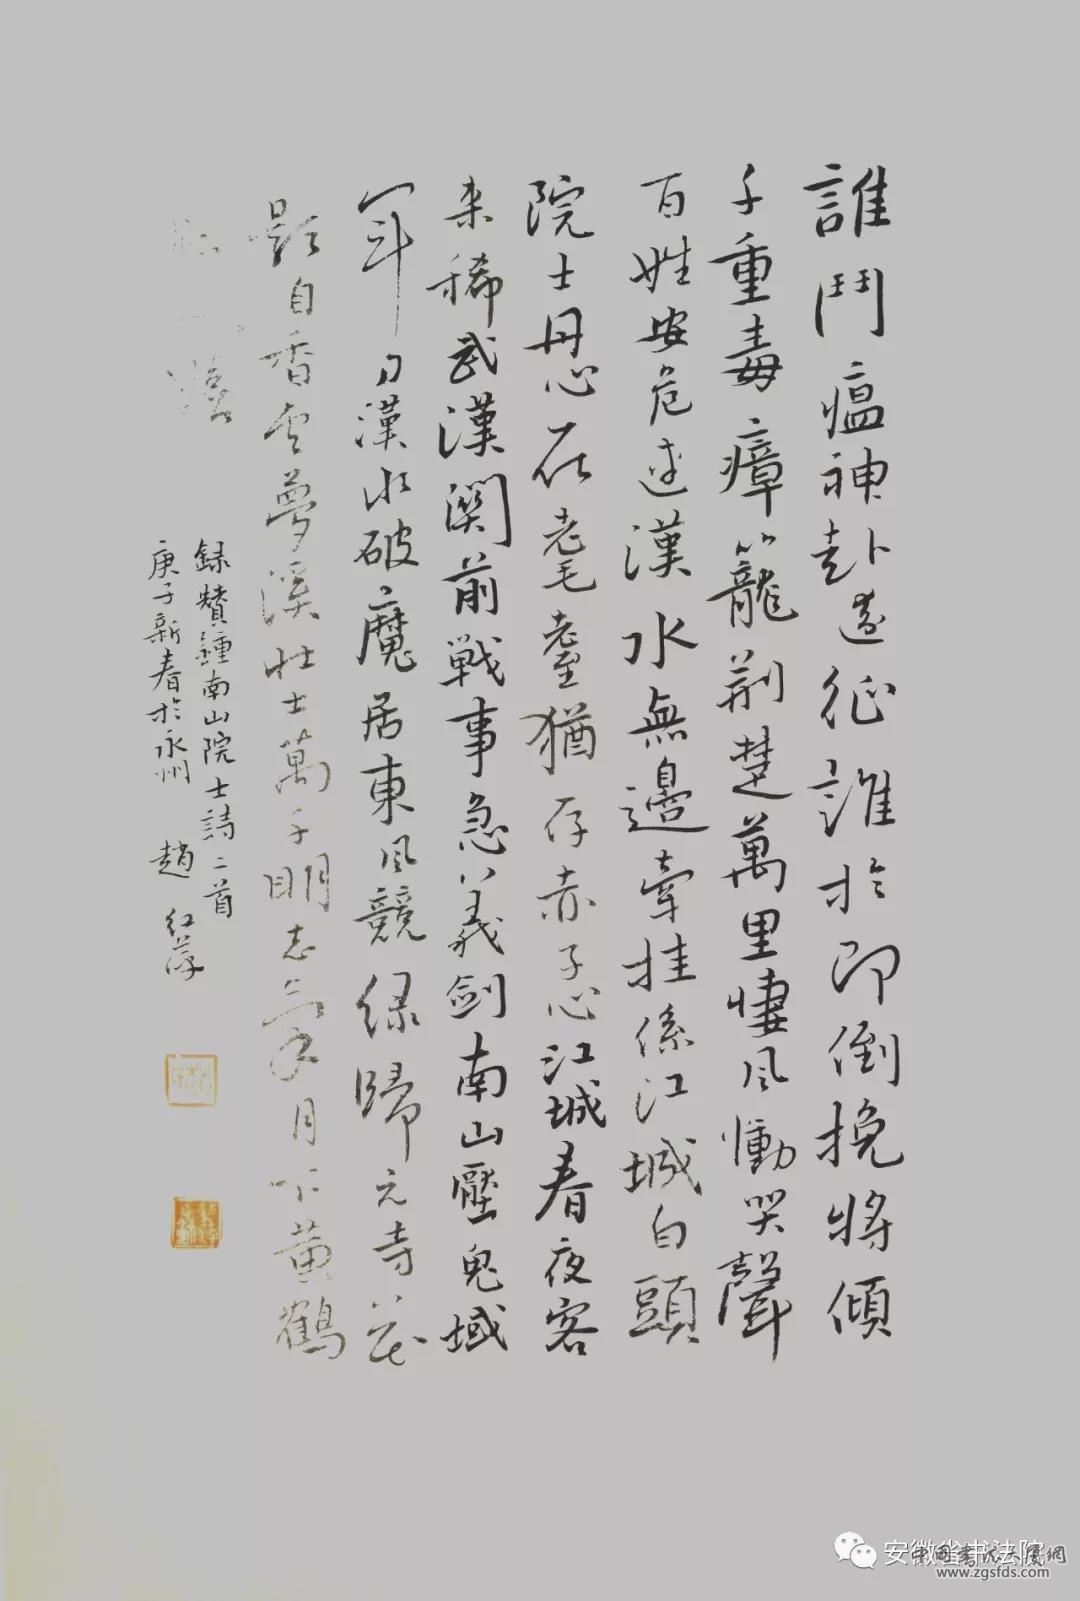 誰鬥瘟神赴遠征誰於即倒挽將傾
子重毒瘴籠荆楚萬里悽風慟哭聲
百姓安危漢水無邊牽挂係江城白頭
院士丹心在耄耋猶存赤子心江城春夜客
来稀武漢関前戦事急義剑南山壓鬼域
漢水破魔居東風競绿歸元寺花
影自香雲夢溪壮士萬千明志月下黄鶴
録贊鍾南山院士詩二首
庚子新春於永州 趙红
安徽省书法院
www.zgsfds.com